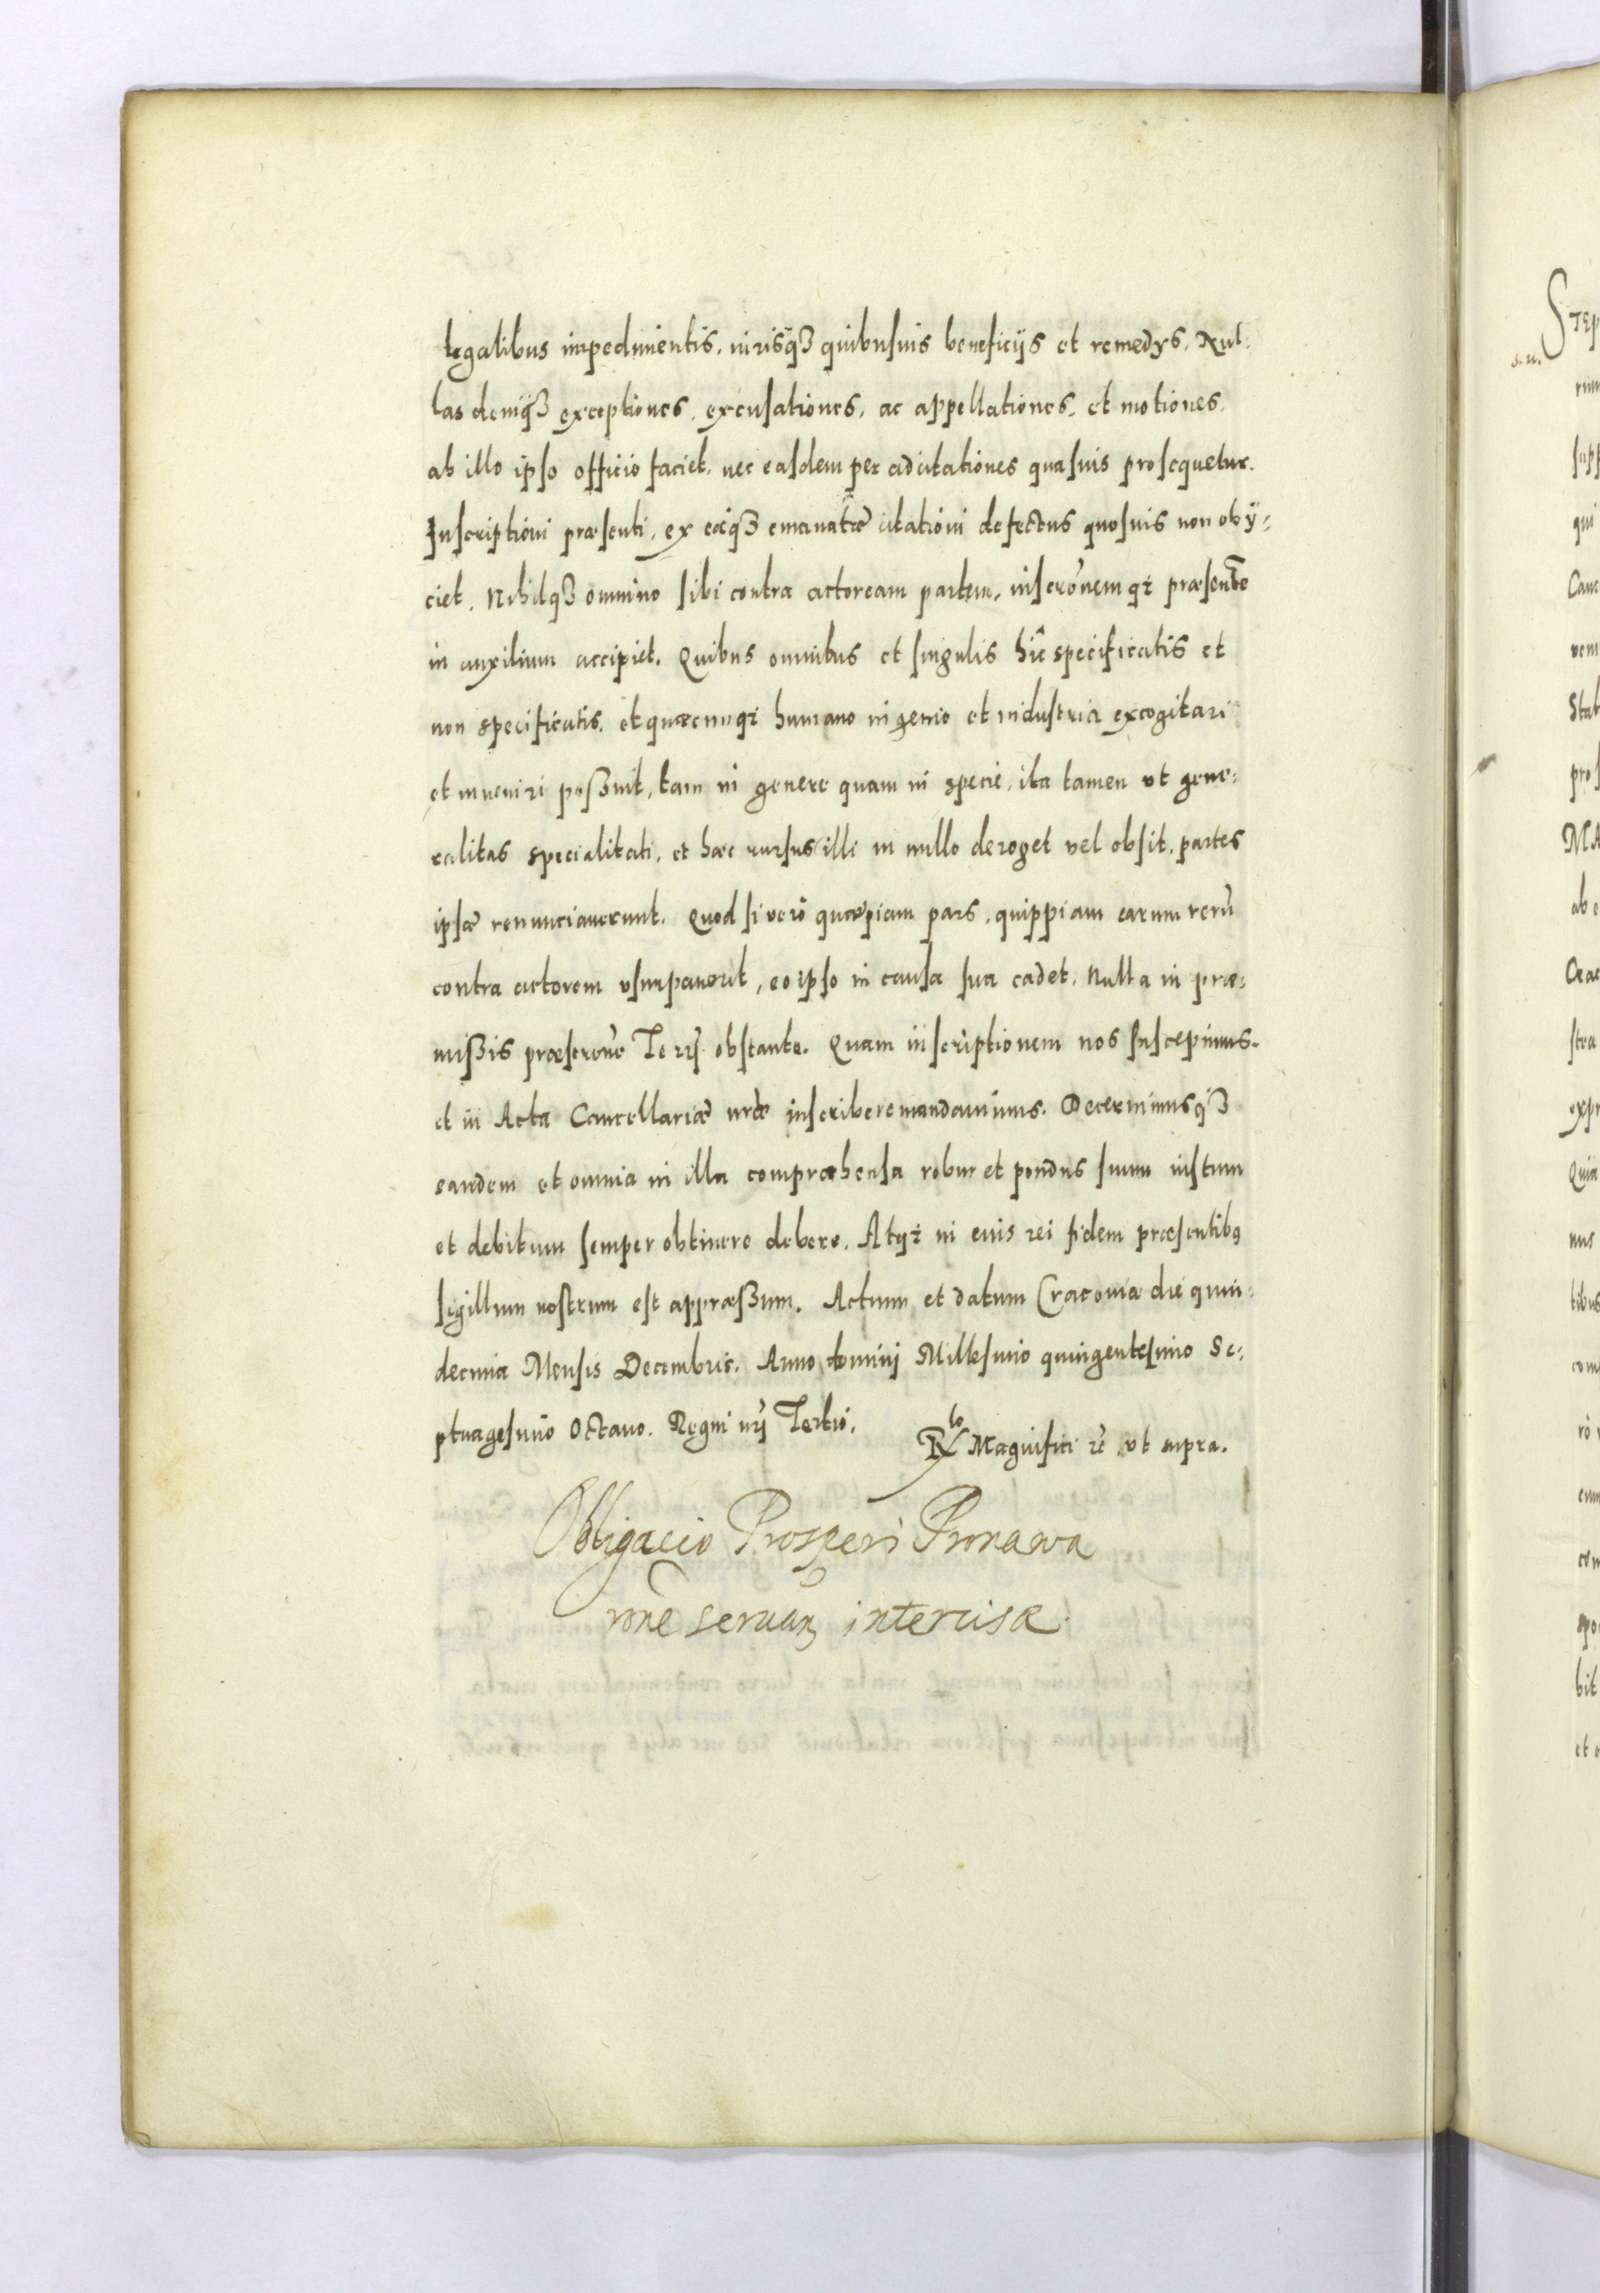 legalibus impedimentis, iurisq3 quibusuis beneficijs et remedijs. Nul-
las deniq3 exceptiones, excusationes, ac appellationes, et motiones,
ab illo ipso officio faciet, nec easdem per adcitationes quasuis prosequetur.
Inscriptioni præsenti, ex eaq3 emanatæ citationi defectus quosuis non obij-
ciet. Nihilq3 omnino sibi contra actoream partem, inscrōnem qȝ præsentē
in auxilium accipiet. Quibus omnibus et singulis hîc specificatis et
non specificatis, et quæcunqȝ humano ingenio et industria excogitari
et inueniri possunt, tam in genere quam in specie, ita tamen vt gene-
ralitas specialitati, et hæc rursus illi in nullo deroget vel obsit, partes
ipsæ renunciauerunt. Quod si verò quæpiam pars, quippiam earum rerū
contra actorem vsurpauerit, eo ipso in causa sua cadet. Nulla in præ-
missis præscrōne Terrȝ obstante. Quam inscriptionem nos suscepimus.
et in Acta Cancellariæ nræ inscribere mandauimus. Decernimusq3
eandem et omnia in illa compræhensa robur et pondus suum iustum
et debitum semper obtinere debere. Atqȝ in cuius rei fidem præsentibȝ
sigillum nostrum est appræssum. Actum et datum Cracouiæ die quin-
decima Mensis Decembris. Anno domini Millesimo quingentesimo Se-
ptuagesimo Octauo. Regni nrī Tertio.
Rlo Magnifici rē vt supra.
Obligacio Prosperi Pronawa
rōne seruan intercisæ